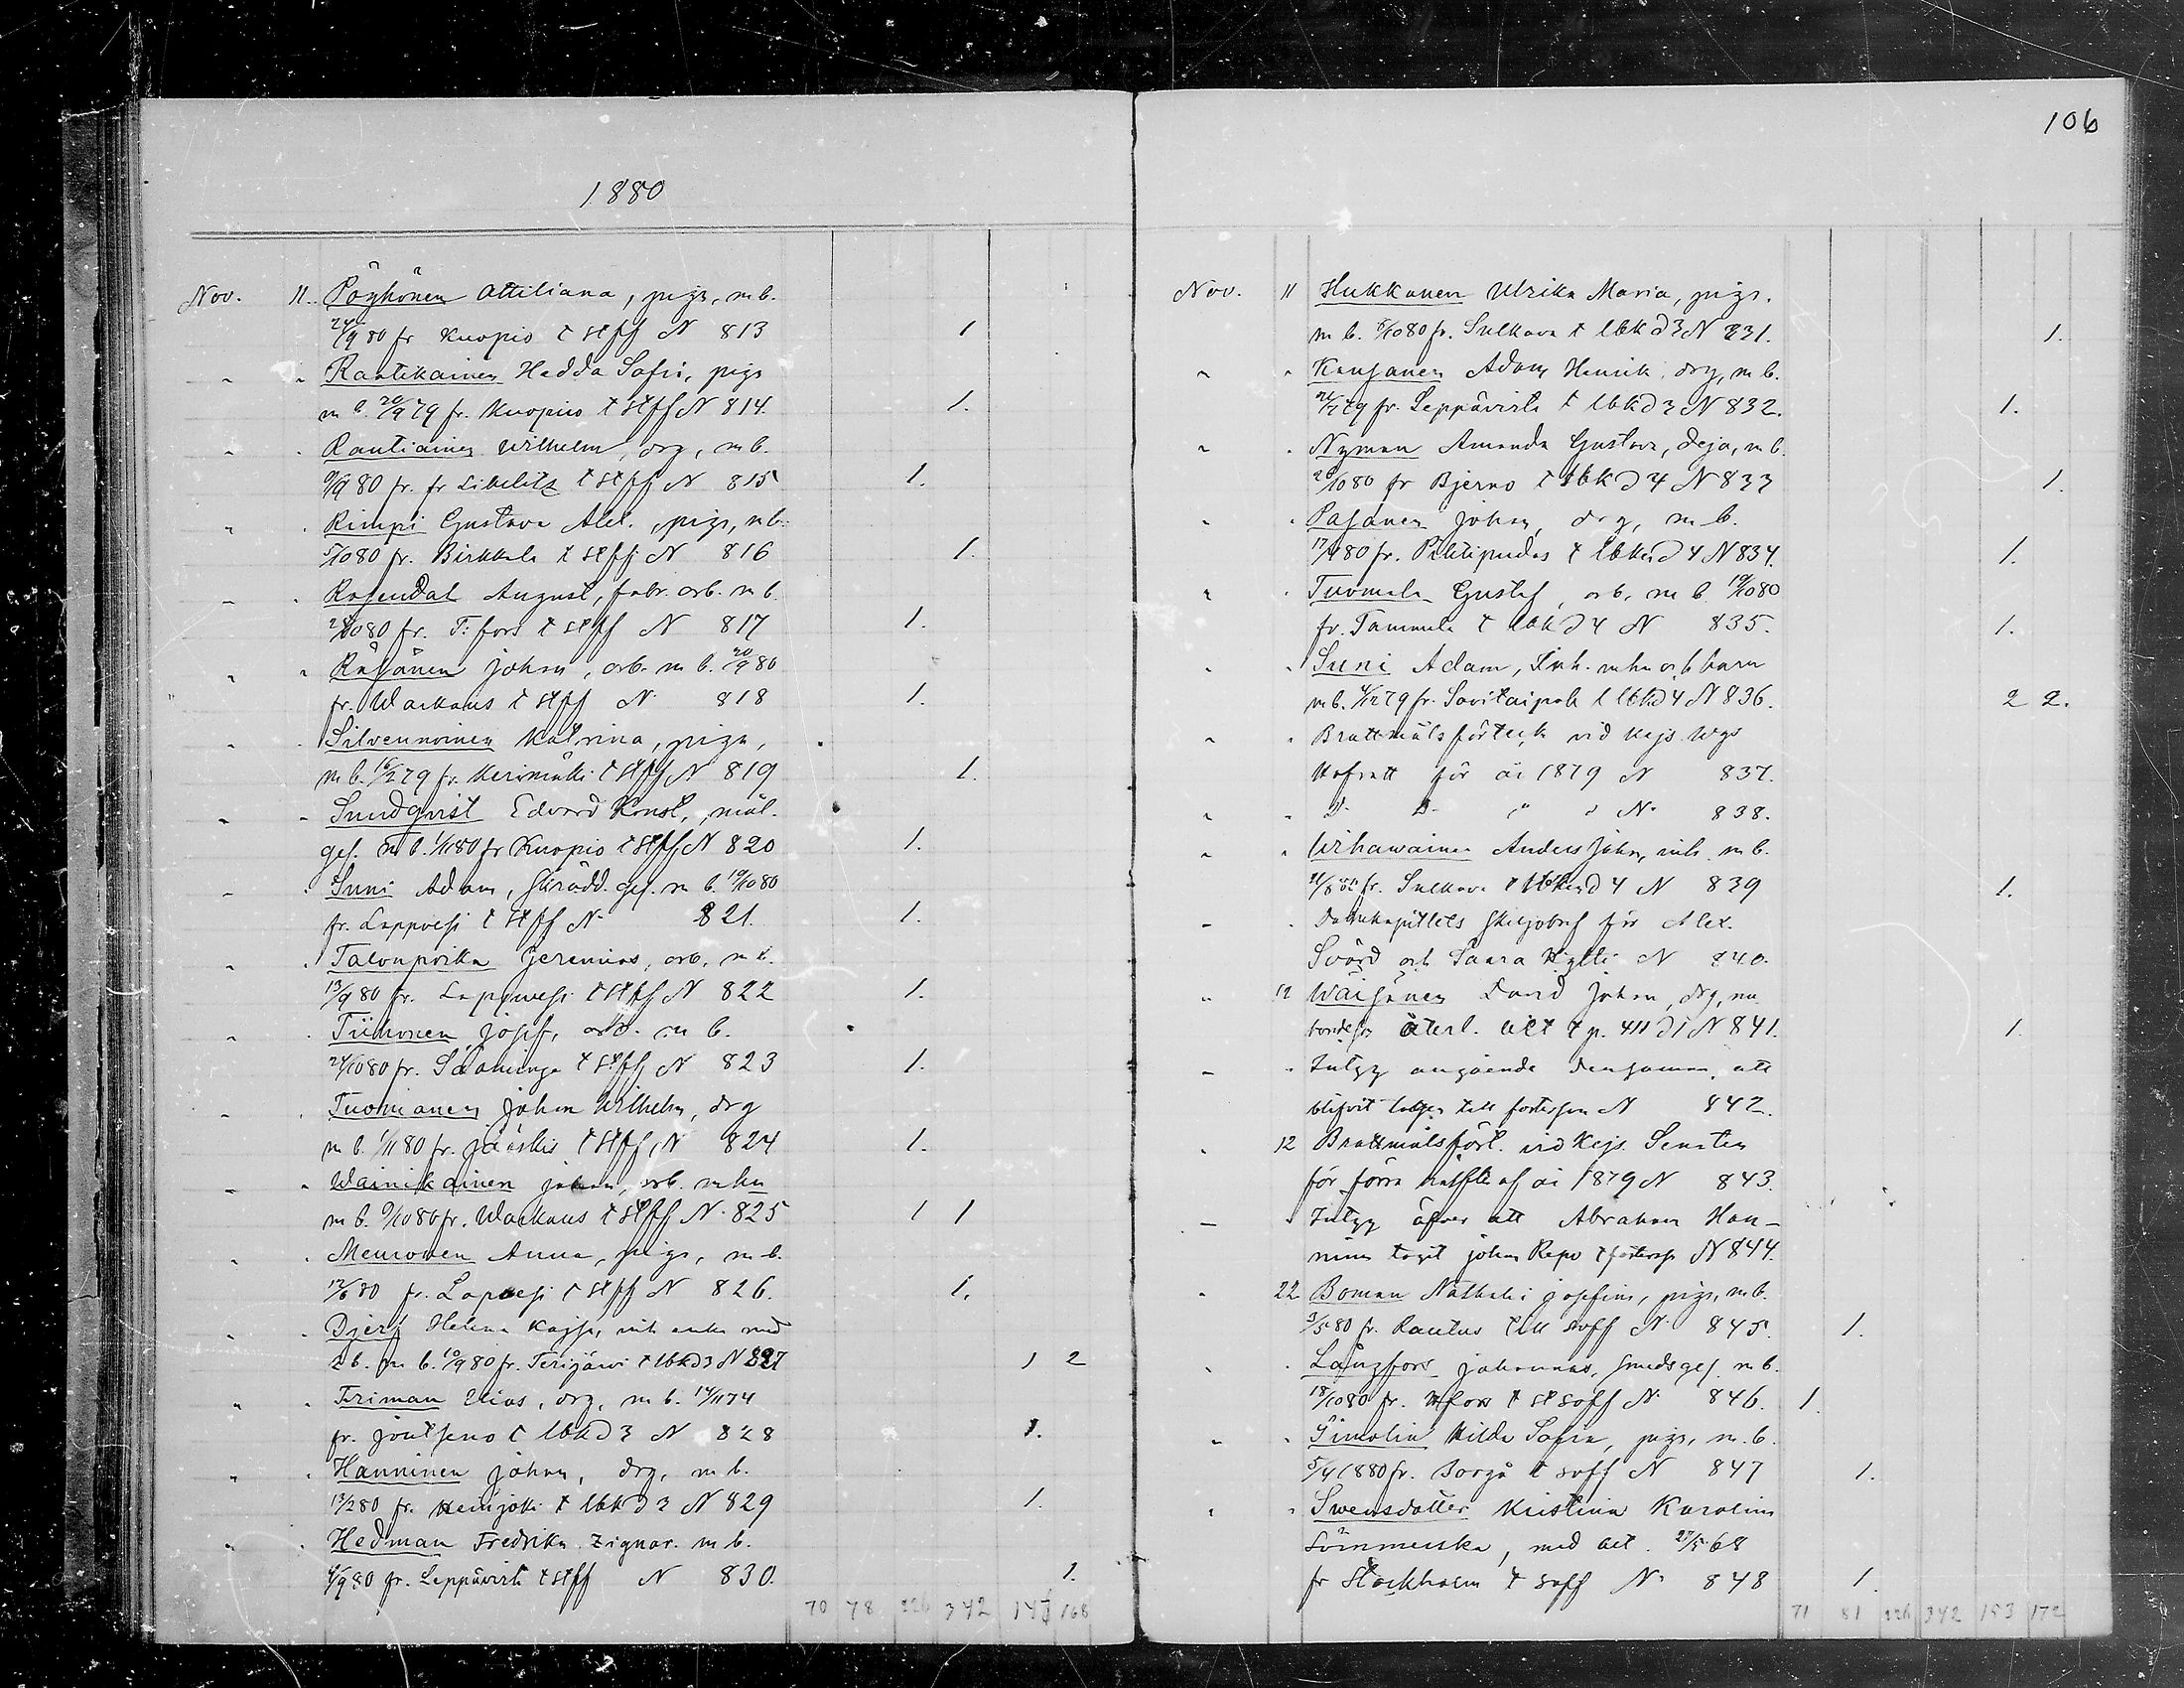 106
1880
Nov. 11. Pöyhönen Attiliana, piga, m b.
24/9 80 fr Kuopio t stff N 813 1
" " Rautikainen Hedda Sofia, piga
m b. 20/9 79 fr. Kuopio t stff N 814. 1.
" " Rautiainen Wilhelm, drg, m b.
9/9 80 fr. fr Libelitz t stff N 815 1.
" " Rimpi Gustava Alex., piga, m b.
5/10 80 fr. Birkkala t stff N 816 1.
" " Rosendal August, fabr. arb. m b.
28/10 80 fr. T:fors t stff N 817 1.
" " Räsänen Johan, arb. m b. 20/9 80
fr. Warkaus t stff N 818 1.
" " Silvennoinen Katrina, piga,
m b. 16/12 79 fr. Kerimäki t stff N 819 1.
" " Sundqvist Edvard Konst., mål.
ges. m b. 1/11 80 fr Kuopio t stff N 820 1.
" " Suni Adam, skrädd. ges. m b. 19/10 80
fr. Lappvesi t stff N 821. 1.
" " Talonpoika Jeremias, arb. m b.
13/9 80 fr. Lappvesi t stff N 822 1.
" " Tiihonen Josef, arb. m b.
24/10 80 fr. Sääminge t stff N 823 1.
" " Tuomianen Johan Wilhelm, drg
m b. 1/11 80 fr. Jääskis t stff N 824 1.
" " Wainikainen Johan, arb. m hu
m b. 9/10 80 fr. Warkaus t stff N. 825 1 1
" " Meuronen Anna, piga, m b.
12/6 80 fr. Lapvesi t stff N 826. 1.
" " Djerf Helena Kajsa, inh enka med
2 b. m b. 10/9 80 fr. Terijärvi t lbk d 3 N 827 1 2
" " Friman Elias, drg, m b. 14/11 74
fr. Joutseno t lbk d 3 N 828 1.
" " Hanninen Johan, drg, m b.
13/2 80 fr. Heinjoki t lbk d 3 N 829 1.
" " Hedman Fredrika Zignar. m b.
9/9 80 fr. Leppävirta t stff N 830. 1.
70 78 226 342 147 168
Nov. 11 Hukkanen Ulrika Maria, piga.
m b. 8/10 80 fr. Sulkava t lbk d 3 N 831. 1.
" " Kausanen Adam Henrik, drg, m b.
fr. Leppävirta t lbk d 3 N 832. 1.
" " Nyman Amanda Gustava, deja, m b.
20/10 80 fr Bjerno t lbk d 4 N 833 1.
" " Pasanen Johan, drg, m b.
fr. Pihtipudas t lbk d 4 N 834. 1.
" " Tuomala Gustaf, arb. m b. 19/10 80
fr. Tammela t lbk d 4 N 835. 1.
" " Suni Adam, Inh. m hu o b barn
m b. 4/12 79 fr. Savitaipale t lbk d 4 N 836. 2 2.
" " Brottmålsförteckn vid Kejs. Wgs
Hofrätt för år 1879 N 837.
" " D. D. " " N. 838.
" " Wihawainen Anders Johan, inh. m b.
fr. Sulkava t lbk d 4 N 839 1.
" " Domkapitlets skiljobref för Alex.
Svärd och Saara Hylti N 840.
" 12 Wäisänen David Johan, drg, nu
bondeson återl. att t p. 411 d 1 N 841. 1.
" " Intyg angående densamma, att
blifvit tagen till fosterson N 842.
" 12 Brottmålsfört. vid Kejs. Senaten
för förra hälften af år 1879 N 843.
" " Intyg öfver att Abraham Han-
ninen tagit Johan Repo t fosterson N 844.
" 22 Boman Nathali Josefina, piga, m b.
3/5 80 fr. Rautus till soff N 845. 1.
" " Långfors Johannes, smedsges. m b.
18/10 80 fr. Hfors t st soff N 846. 1.
" " Simolin Hilda Sofia, piga, m. b.
5/4 1880 fr. Borgå t soff N 847 1.
" " Swensdotter Kristina Karolina
Sömmerska, med bet. 27/5 68
fr Stockholm t soff N. 848 1.
71 81 226 342 153 172